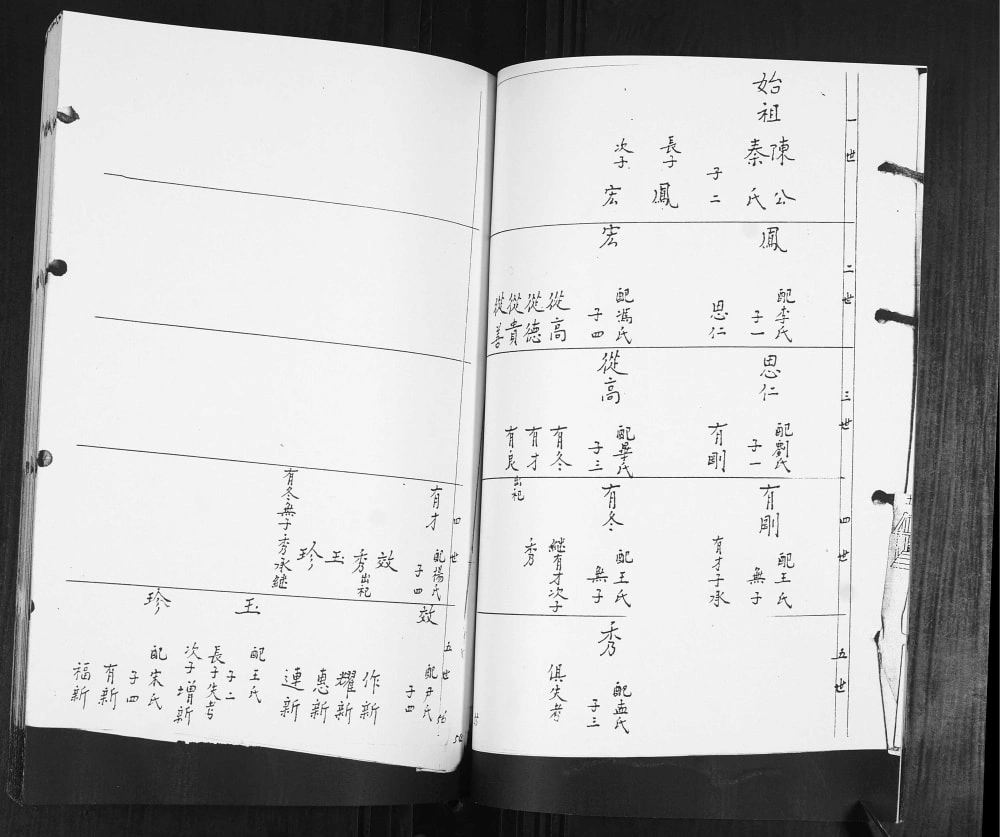 一世
始祖
陳公
秦氏
子二
長子鳳
次子宏
二世
鳳
配李氏
子一
思仁
宏
配馮氏
子四
從高
從德
從貴
從善
三世
思仁
配劉氏
子一
有剛
從高
配畢氏
子三
有冬
有才
有良出祀
四世
有剛
配王氏
無子
有才子承
有冬
配王氏
無子
繼有才次子
秀
五世
秀
配孟氏
子三
俱失考
四世
有才
配楊氏
子四
效
秀出祀
玉
珍
有冬無子秀承繼
五世
效
配尹氏
子四
作新
耀新
惠新
連新
玉
配王氏
子二
長子失考
次子增新
珍
配宋氏
子四
有新
福新
56